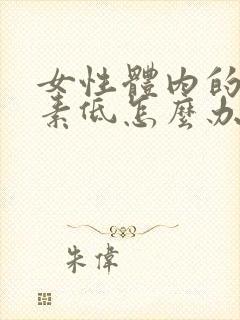 女性體內的
素低怎麼办
朱偉